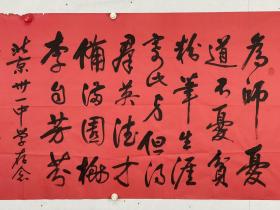 為師憂
道不憂貧
粉筆生涯
寄此身但得
羣英德才
備滿園桃
李自芳芬
北京卅一中学存念